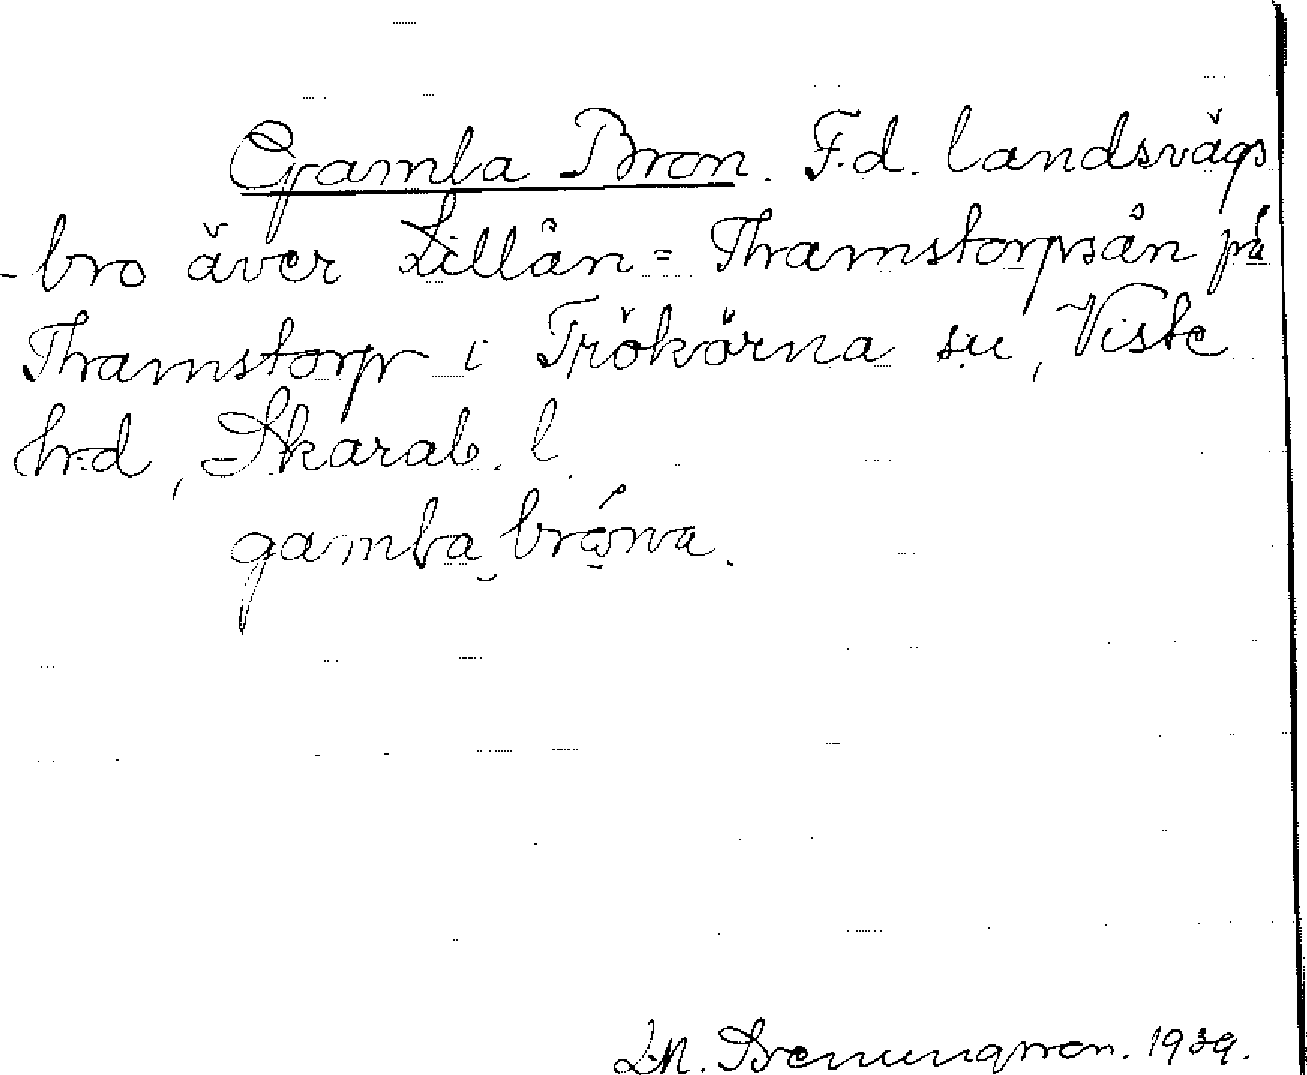 Gamla Bron. F.d. landsvägs
-bro över Lillån = Thamstorpsån på
Thamstorp i Trökörna sn, Viste
h:d, Skarab. l.
gamla bróna.
1939.